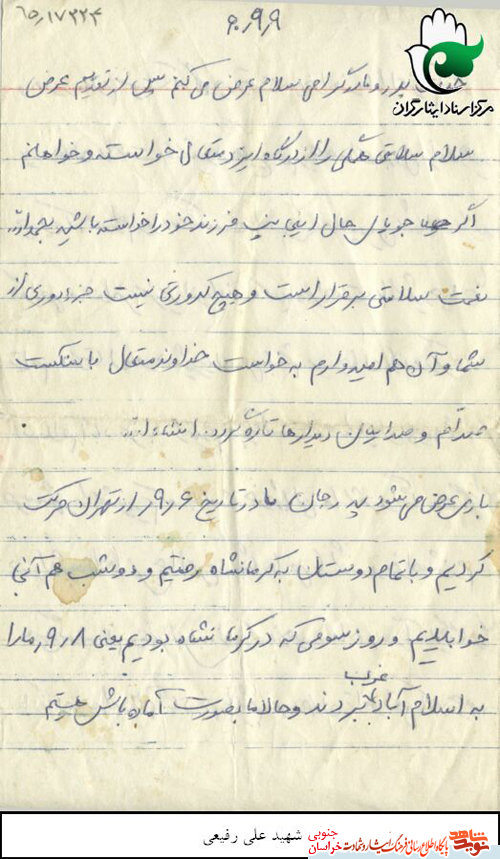 ۶۵,۱۷۳۲۴
۶۰,۹,۹
مرکز اسناد ایثارگران
پدر و مادر گرامی سلام عرض می کنم پس از تقدیم عرض
سلام سلامتی همگی را از درگاه ایزد متعال خواسته و خواهانم
اگر جویای حال اینجانب فرزند خود را خواسته باشید بحمدالله
نعمت سلامتی برقرار است و هیچ کدورتی نیست جز دوری از
شما و آن هم امیدوارم به خواست خداوند متعال با شکست
صدام و صدامیان دیدارها تازه گردد انشاءالله
باری عرض می شود پدر جان ما در تاریخ ۹٫۶ از تهران حرکت
کردیم و با تمام دوستان به کرمانشاه رفتیم و دو شب هم آنجا
خوابیدیم و روز سومی که در کرمانشاه بودیم یعنی ۹٫۸ ما را
به اسلام آباد غرب بردند و حالا ما بصورت آماده باش هستیم
شهید علی رفیعی
خراسان جنوبی
پایگاه اطلاع رسانی فرهنگ ایثار و شهادت
نوید شاهد